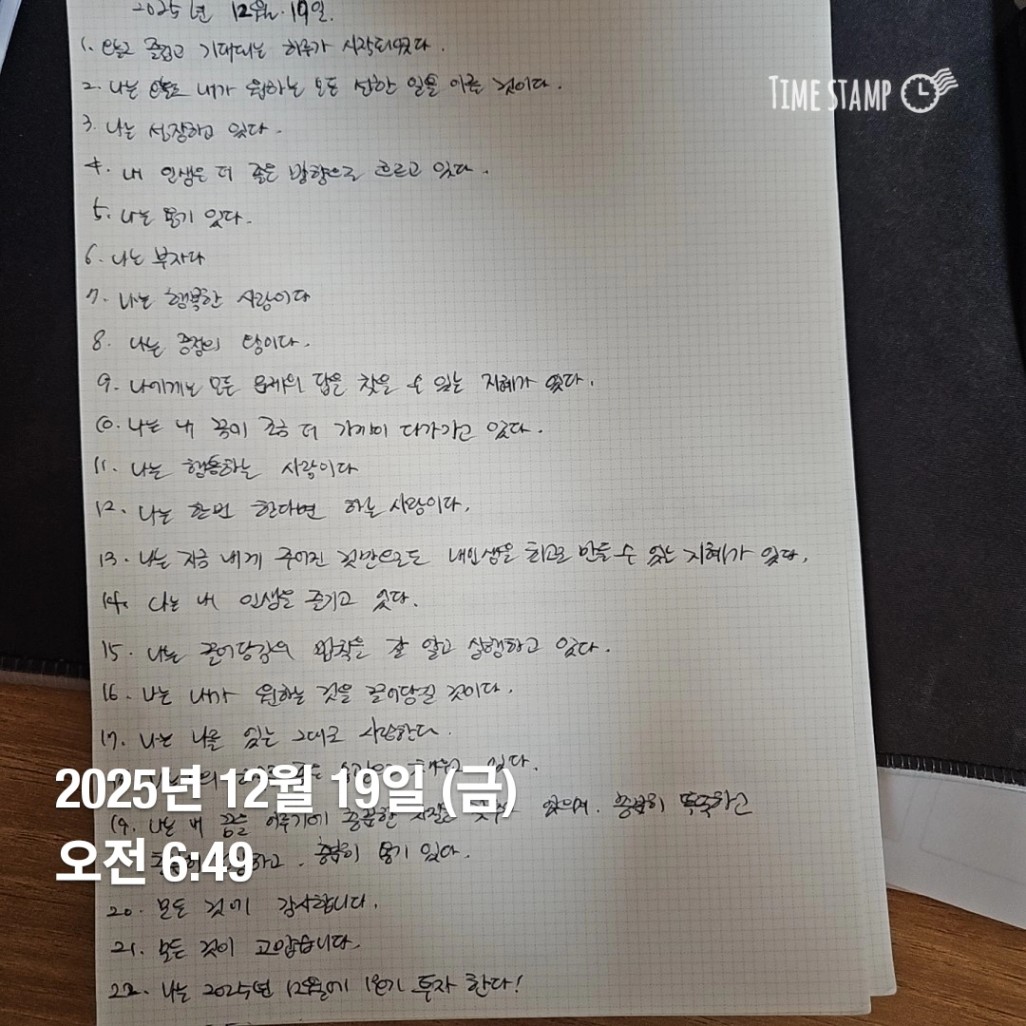 2025년 12월 19일.
TIME STAMP
1. 오늘도 즐겁고 기대되는 하루가 시작되었다.
2. 나는 오늘도 내가 원하는 모든 선한 일을 이룰 것이다.
3. 나는 성장하고 있다.
4. 내 인생은 더 좋은 방향으로 흐르고 있다.
5. 나는 용기 있다.
6. 나는 부자다
7. 나는 행복한 사람이다
8. 나는 긍정의 왕이다.
9. 나에게는 모든 문제의 답을 찾을 수 있는 지혜가 있다.
10. 나는 내 꿈에 조금 더 가까이 다가가고 있다.
11. 나는 행동하는 사람이다
12. 나는 한번 한다면 하는 사람이다.
13. 나는 지금 내게 주어진 것만으로도 내인생을 최고로 만들 수 있는 지혜가 있다.
14. 나는 내 인생을 즐기고 있다.
15. 나는 끌어당김의 법칙을 잘 알고 실행하고 있다.
16. 나는 내가 원하는 것을 끌어당길 것이다.
17. 나는 나를 있는 그대로 사랑한다.
있다.
2025년 12월 19일 (금)
19. 나는 내 꿈을 이루기에 충분한 있으며. 충분히 똑똑하고
하고. 충분히 용기 있다.
오전 6:49
20. 모든 것에 감사합니다.
21. 모든 것이 고맙습니다.
22. 나는 2025년 12월에 1호기 투자 한다!